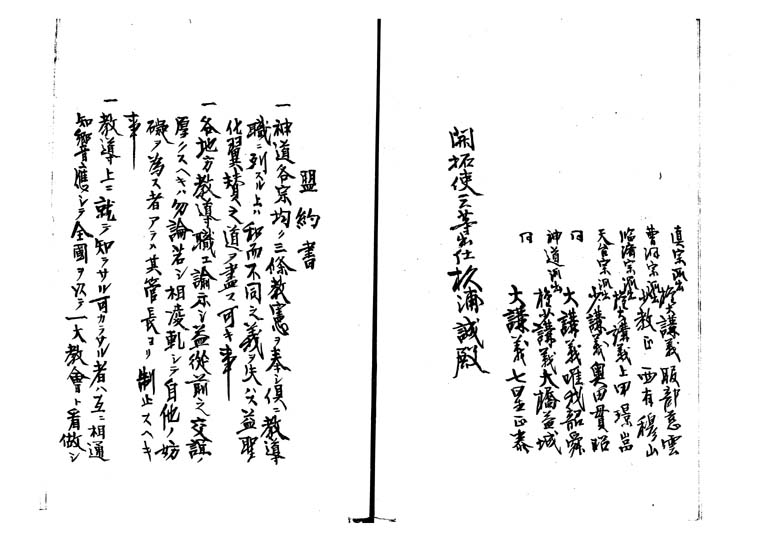 真宗派出
権大講義 服部慈雲
曹洞宗派出
権少教正 西有穆山
臨済宗派出
権大講義 上田環嵩
天台宗派出
少講義 奥田貫昭
同
大講義 唯我韶舜
神道派出
権少講義 大橋益城
同
大講義 七星正泰
開拓使三等出仕 杉浦誠殿
盟約書
一 神道各宗均ク三條教憲ヲ奉シ倶ニ教導
職ニ列スル上ハ和而不同之義ヲ失ハス益聖
化翼賛之道ヲ盡ス可キ事
一 各地方教導職エ諭示シ益從前之交誼ヲ
厚クスヘキハ勿論若シ相凌軋シテ自他ノ妨
礙ヲ為ス者アラハ其管長ヨリ制止スヘキ
事
一 教導上ニ就テ知ラサル可カラサル者ハ互ニ相通
知響應シテ全國ヲ以テ一大教會ト看做シ